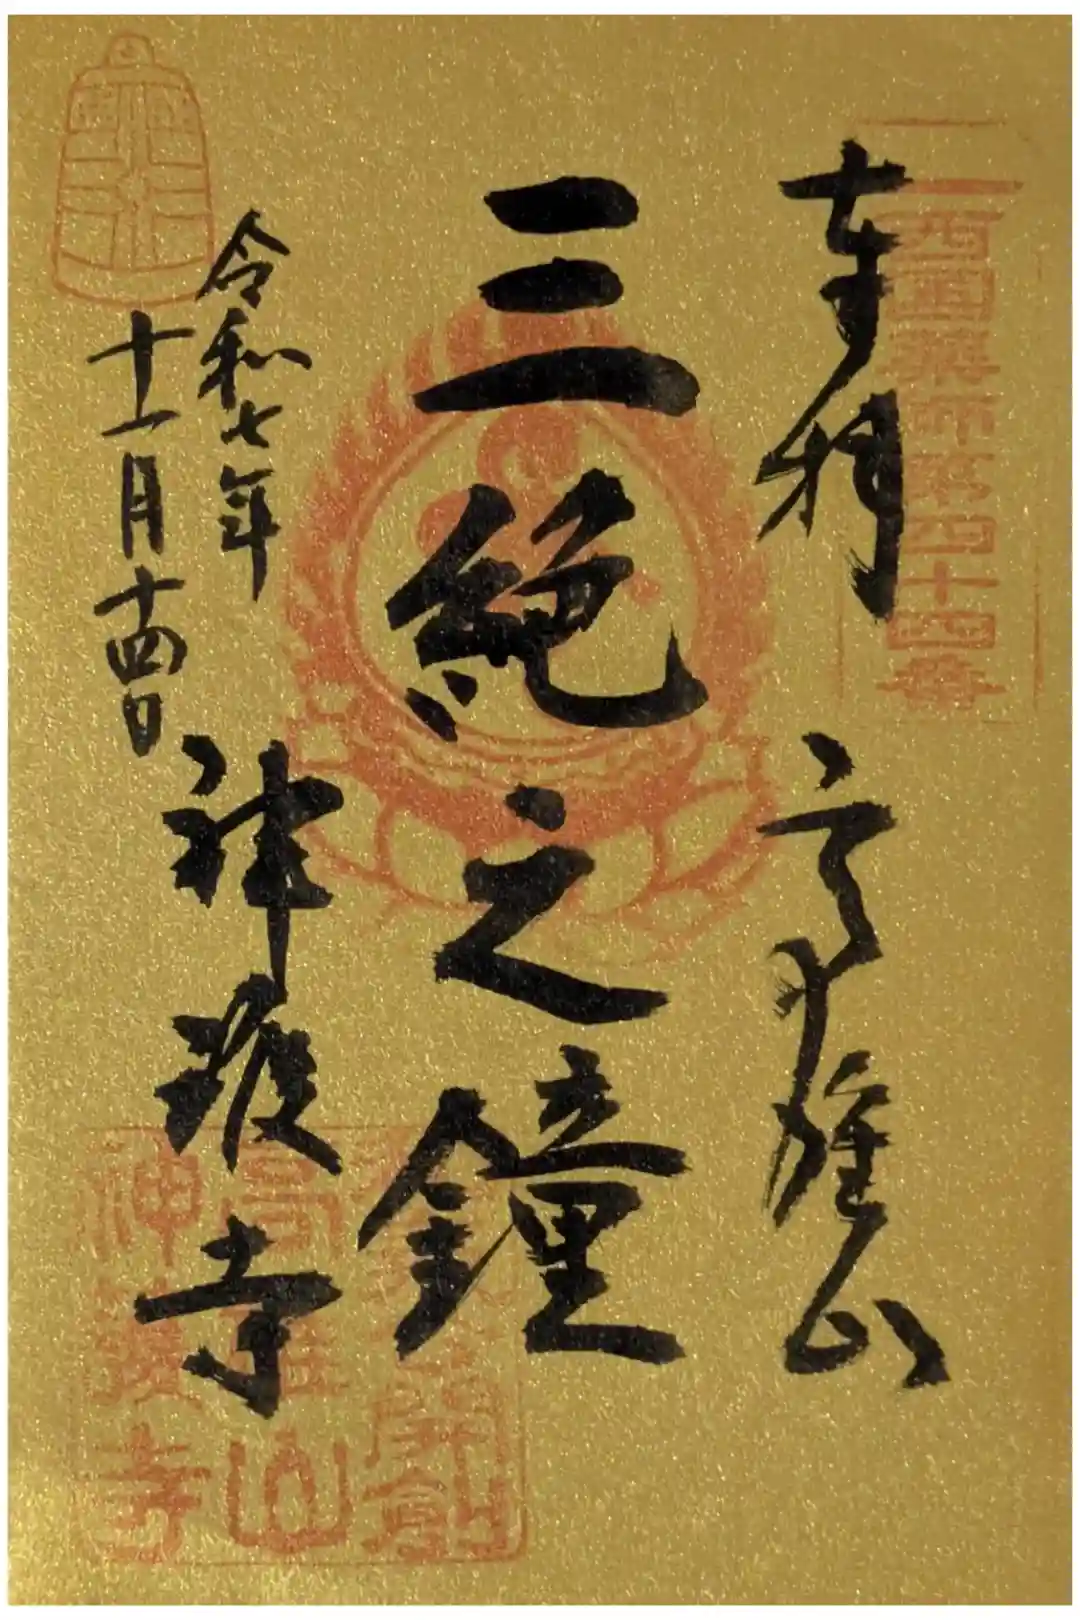 奉拝
高雄山
西国薬師第四十四番
三絶之鐘
令和七年
十一月十四日
神護寺
開創
高雄山
神護寺